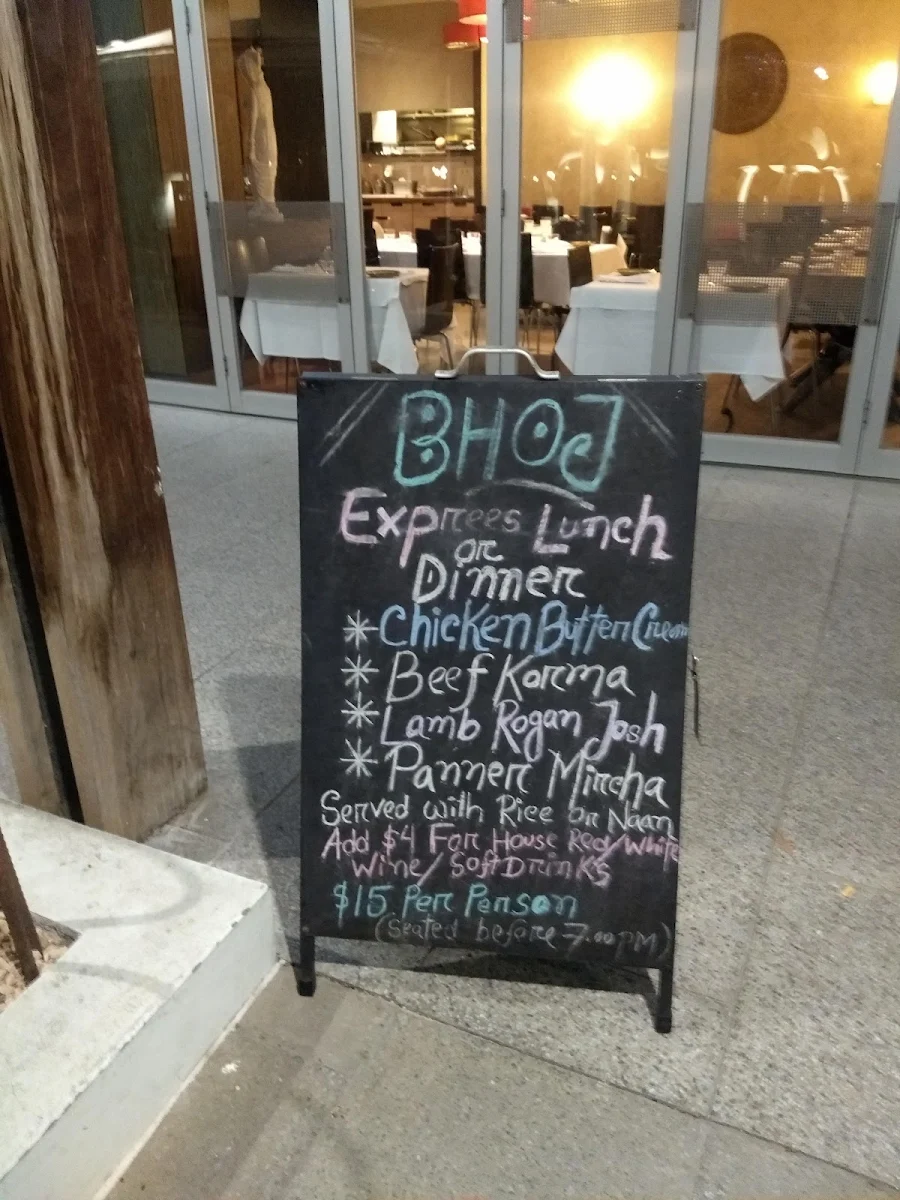 BHOJ
Exprees Lunch
or
Dinner
* Chicken Butter Cream
* Beef Korma
* Lamb Rogan Josh
* Panner Mircha
Served with Rice or Naan
Add $4 For House Red/White
Wine/ Soft Drinks
$15 Per Person
(Seated before 7.00 PM)